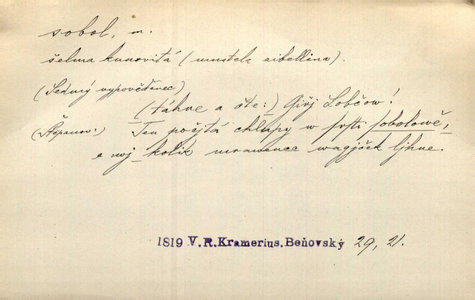 sobol, m.
šelma kunovitá (mustela zibellina).
(Sedmý vypověděnec)
(táhne a čte:) Giǧ Lobčow!
(Štěpanow:) Ten počjtá chlupy w srsti sobolowě,
a kolik mrawenec wagjček ljhne.
1819 V.R.Kramerius.Beňovský 29, 21.